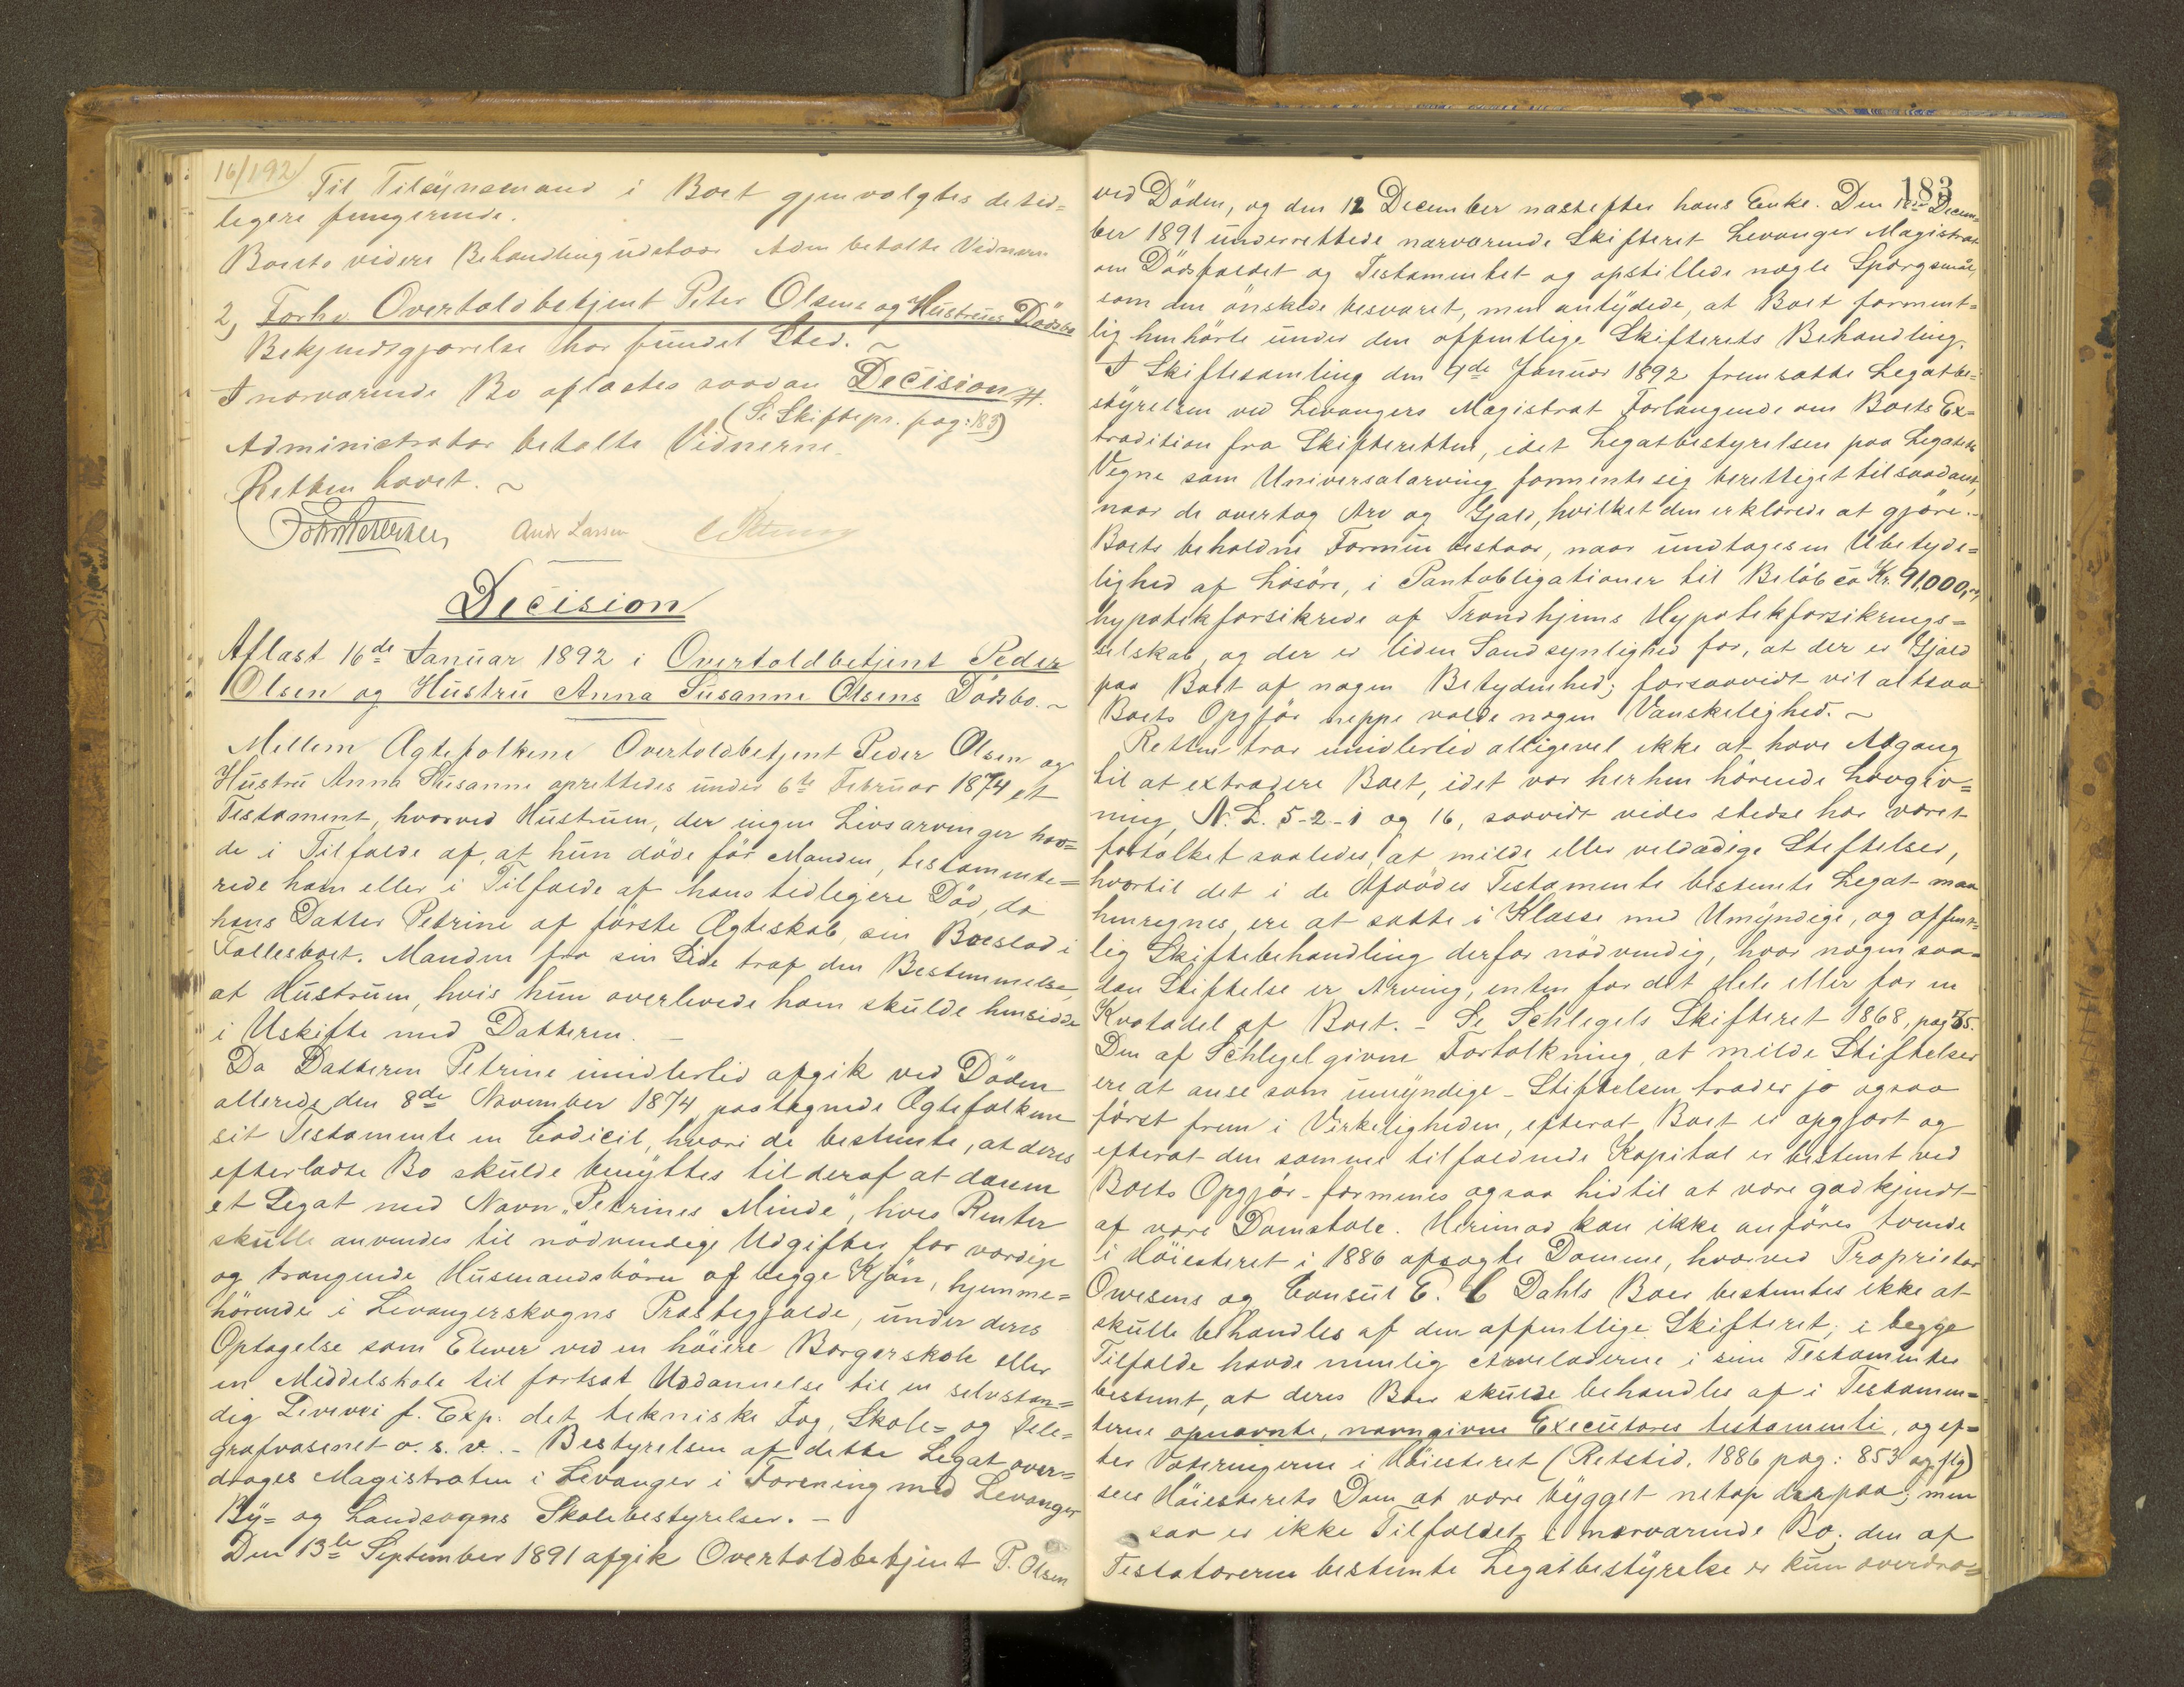 16/1 92
Til Tilsynsmand i Boet gjenvalgtes de tid=
ligere fungerende.
Boets videre Behandling udstaar Adm betalte Vidnerne
2, Forhv Overtoldbetjent Peter Olsens og Hustrues Dødsbo
Bekjendtgjørelse har fundet Sted. ~
I nærværende Bo aflæstes saadan Decision #.
(Se Skiftepr. pag: 183)
Administrator betalte Vidnerne.
Retten hævet. ~
Andr Larsen
Decision
Aflæst 16de Januar 1892 i Overtoldbetjent Peder
Olsen og Hustru Anna Susanne Olsens Dødsbo. ~
Mellem Ægtefolkene Overtoldbetjent Peder Olsen og
Hustru Anna Susanne oprettedes under 6te Februar 1874 et
Testament, hvorved Hustruen, der ingen Livsarvinger hav=
de i Tilfælde af, at hun døde før Manden, testamente=
rede ham eller i Tilfælde af hans tidligere Død, da
hans Datter Petrine af første Ægteskab, sin Boeslod i
Fællesboet. Manden fra sin Side traf den Bestemmelse,
at Hustruen, hvis hun overlevede ham skulde hensidde
i Uskifte med Datteren. –
Da Datteren Petrine imidlertid afgik ved Døden
allerede den 8de November 1874 paategnede Ægtefolkene
sit Testamente en Codicil, hvori de bestemte, at deres
efterladte Bo skulde benyttes til deraf at danne
et Legat med Navn „Petrines Minde“, hves Renter
skulle anvendes til nødvendige Udgifter for værdige
og trængende Husmandsbørn af begge Kjøn, hjemme=
hørende i Levangerskogns Præstegjælde, under deres
Optagelse som Elever ved en høiere Borgerskole eller
en Middelskole til fortsat Uddannelse til en selvstæn=
dig Levevei f. Exp: det tekniske Fag, Skole= og Tele=
grafvæsenet o. s. v. – Bestyrelsen af dette Legat over=
drages Magistraten i Levanger i Forening med Levanger
By= og Landsogns Skolebestyrelser. –
Den 13de September 1891 afgik Overtoldbetjent P. Olsen
183
ved Døden, og den 12 December næstefter hans Enke. Den Decem=
ber 1891 underrettede nærværende Skifteret Levanger Magistrat
om Dødsfaldet og Testamentet og opstillede nogle Spørgsmål,
som den ønskede besvaret, men antydede, at Boet forment=
lig henhørte under den offentlige Skifterets Behandling.
I Skiftesamling den 9de Januar 1892 fremsatte Legatbe=
styrelsen ved Levangers Magistrat Forlangende om Boets Ex=
tradition fra Skifteretten, idet Legatbestyrelsen paa Legatets
Vegne som Universalarving formente sig berettiget til saadant,
naar de overtog Arv og Gjæld, hvilket den erklærede at gjøre. –
Boets beholdne Formue bestaar, naar undtages en Ubetyde=
lighed af Løsøre, i Pantobligationer til Beløb ca Kr. 91,000,
hypotekforsikrede af Trondhjems Hypotekforsikrings=
selskab, og der er liden Sandsynlighed for, at der er Gjæld
paa Boet af nogen Betydenhed; forsaavidt vil altsaa
Boets Opgjør neppe volde nogen Vanskelighed. ~
Retten tror imidlertid alligevel ikke at have Adgang
til at extradere Boet, idet vor herhen hørende Lovgiv=
ning N. L. 5-2-1 og 16, saavidt vides stedse har været
fortolket saaledes, at milde eller veldædige Stiftelser,
hvortil det i de Afdødes Testamente bestemte Legat maa
henregnes, ere at sætte i Klasse med Umyndige, og offent=
lig Skiftebehandling derfor nødvendig, hvor nogen saa=
dan Stiftelse er Arving, enten for det Hele eller for en
Kvotadel af Boet. – Se Schlegels Skifteret 1868, pag
Den af Schlegel givne Fortolkning, at milde Stiftelser
ere at anse som umyndige – Stiftelsen træder jo ogsaa
først frem i Virkeligheden, efterat Boet er opgjort og
efterat den samme tilfaldende Kapital er bestemt ved
Boets Opgjør – formenes ogsaa hidtil at være godkjendt
af vore Domstole. Herimod kan ikke anføres tvende
i Høiesteret i 1886 afsagte Domme, hvorved Proprietær
Owesens og Consul E. C Dahls Boer bestemtes ikke at
skulle behandles af den offentlige Skifteret; i begge
Tilfælde havde nemlig Arveladerne i sine Testamenter
bestemt, at deres Boer skulde behandles af i Testamen=
terne opnævnte, navngivne Executores testamenti, og ef=
ter Voteringerne i Høiesteret (Retstid. 1886 pag: 853 og flg)
sees Høiesterets Dom at være bygget netop derpaa; men
saa er ikke Tilfældet i nærværende Bo; den af
Testatorerne bestemte Legatbestyrelse er kun overdra=